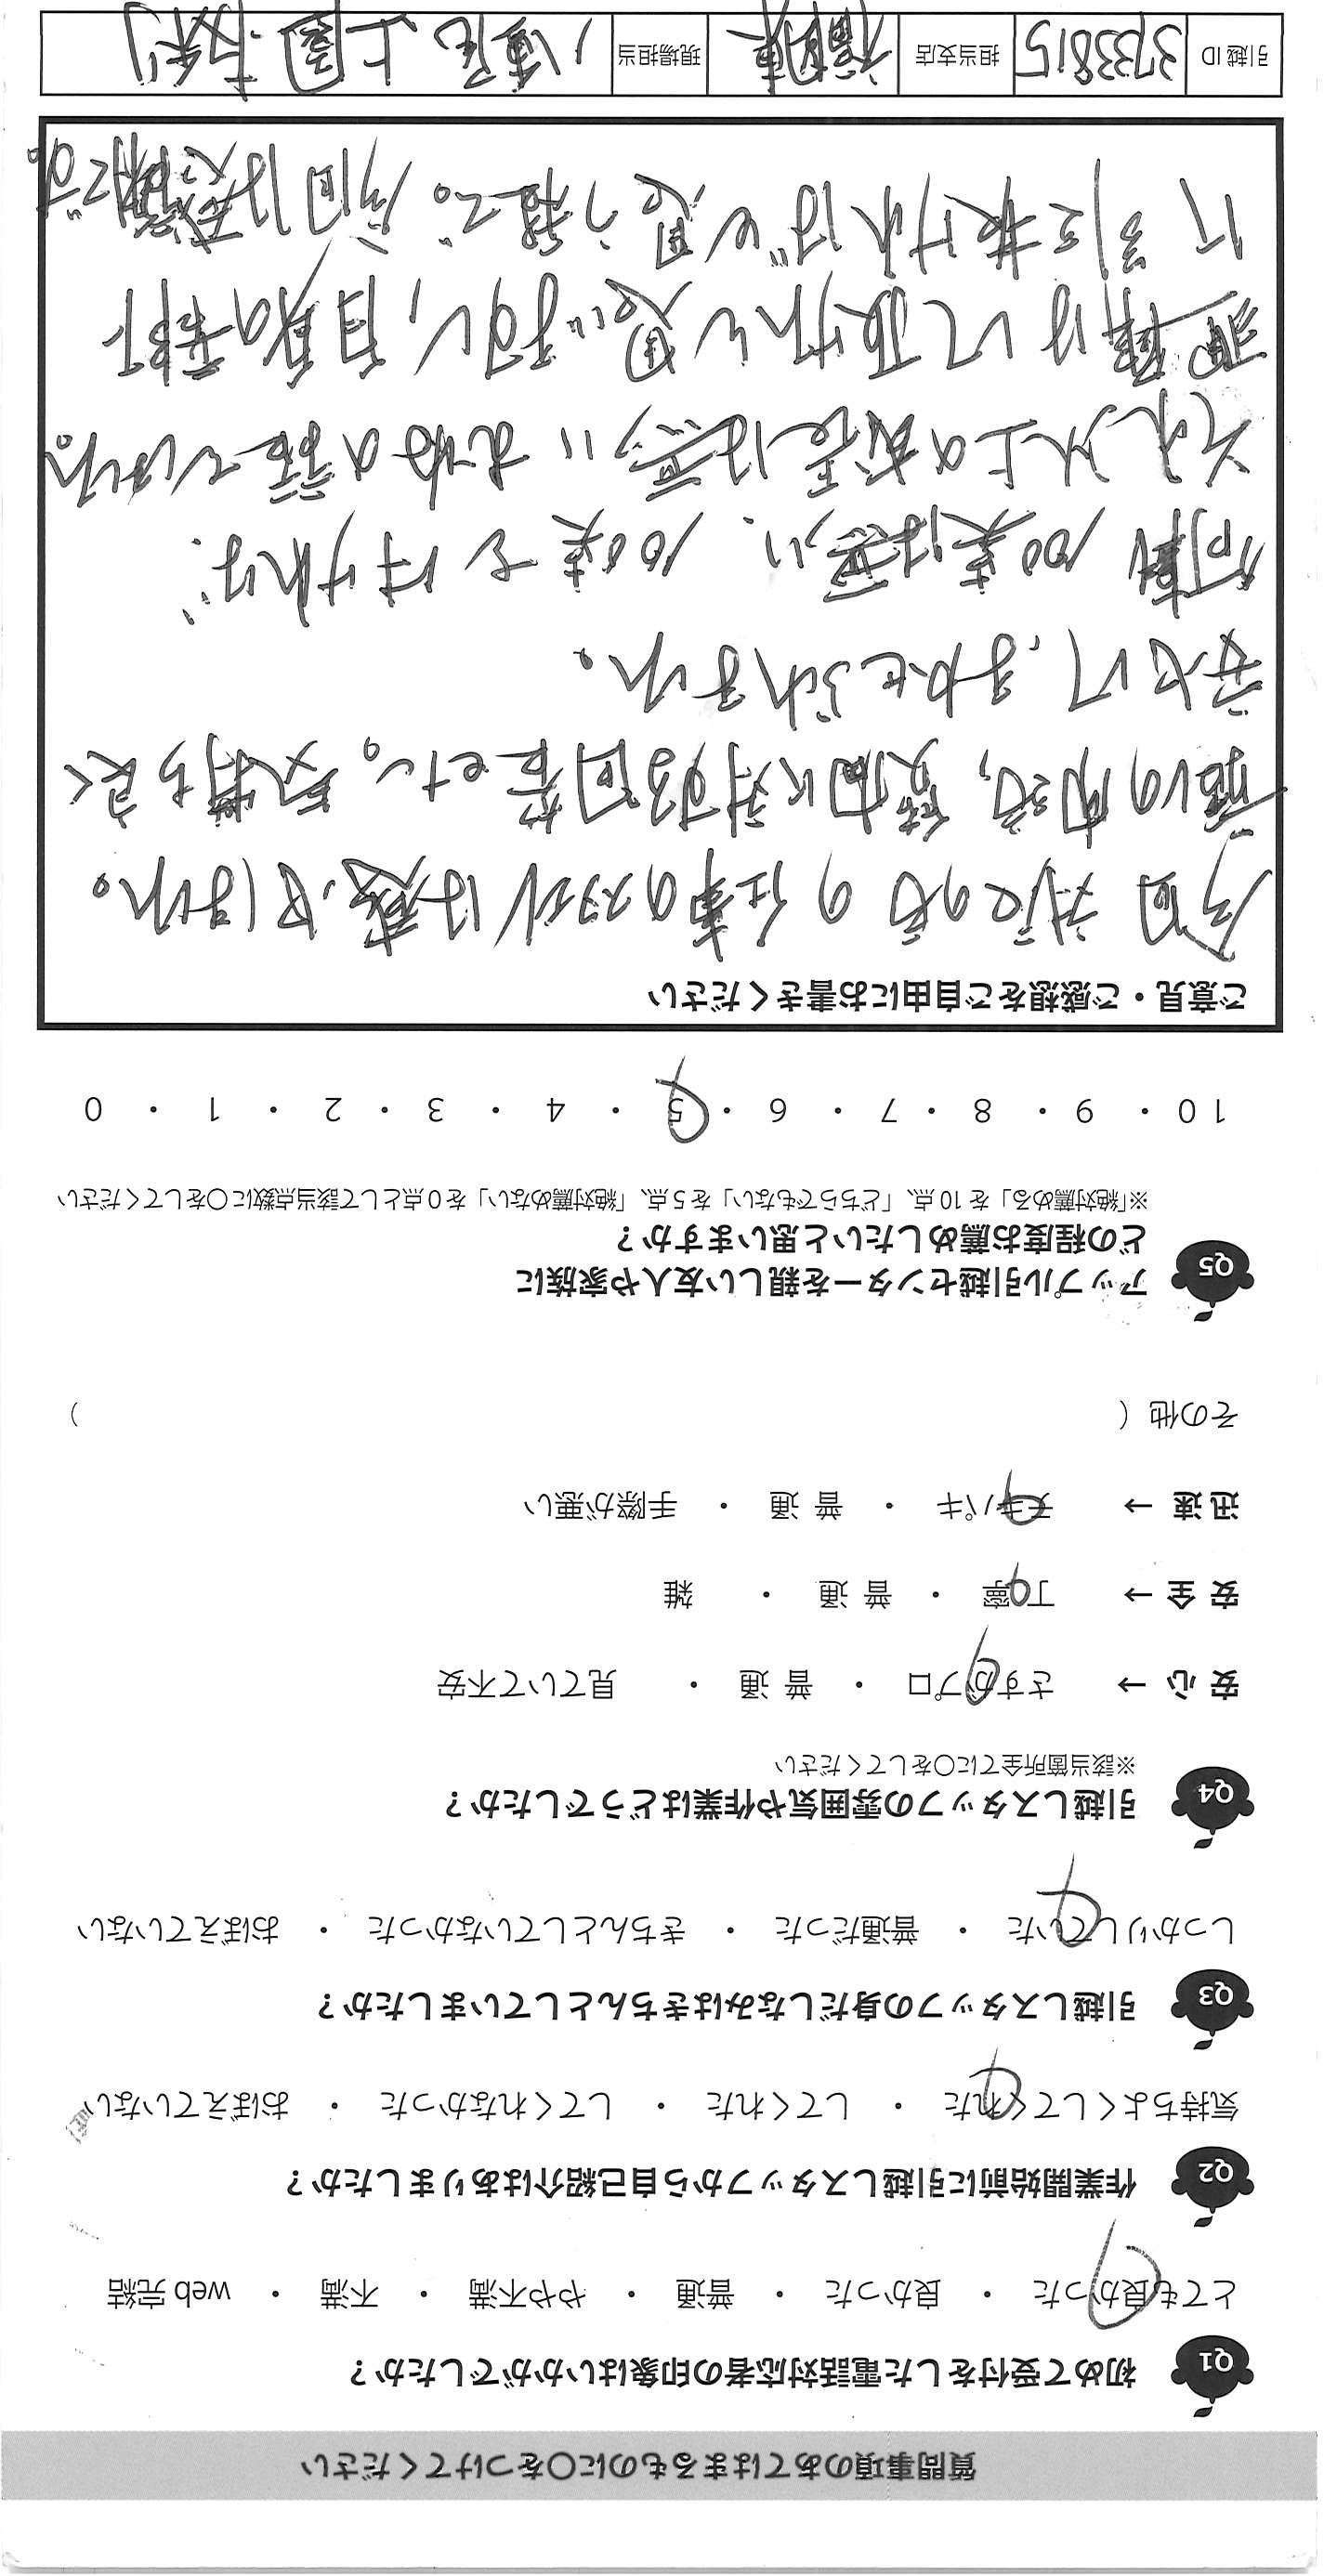 質問事項のあてはまるものに○をつけてください
Q1 初めて受付をした電話対応者の印象はいかがでしたか？
とても良かった ・ 良かった ・ 普通 ・ やや不満 ・ 不満 ・ web 完結
Q2 作業開始前に引越しスタッフから自己紹介はありましたか？
気持ちよくしてくれた ・ してくれた ・ してくれなかった ・ おぼえていない
Q3 引越しスタッフの身だしなみはきちんとしていましたか？
しっかりしていた ・ 普通だった ・ きちんとしていなかった ・ おぼえていない
Q4 引越しスタッフの雰囲気や作業はどうでしたか？
※該当箇所全てに○をしてください
安 心 → さすがプロ ・ 普 通 ・ 見ていて不安
安 全 → 丁寧 ・ 普 通 ・ 雑
迅 速 → テキパキ ・ 普 通 ・ 手際が悪い
その他（ ）
Q5 アップル引越センターを親しい友人や家族に
どの程度お薦めしたいと思いますか？
※「絶対薦める」を 10 点、「どちらでもない」を 5 点、「絶対薦めない」を 0 点として該当点数に○をしてください
10 ・ 9 ・ 8 ・ 7 ・ 6 ・ 5 ・ 4 ・ 3 ・ 2 ・ 1 ・ 0
ご意見・ご感想をご自由にお書きください
今回 の仕事の は感心しました。
の 、質問に対する回答etc。気持ち良く
安心して、まかせられました。
100点は悪い、100点を付ければ、
それ以上の成長は悪い
して頂けたと思い 、自身の部下
に引き抜ければと思う程で。今回は感謝です。
引越 ID 3733815 担当支店 福岡東 現場担当 八重尾 上園